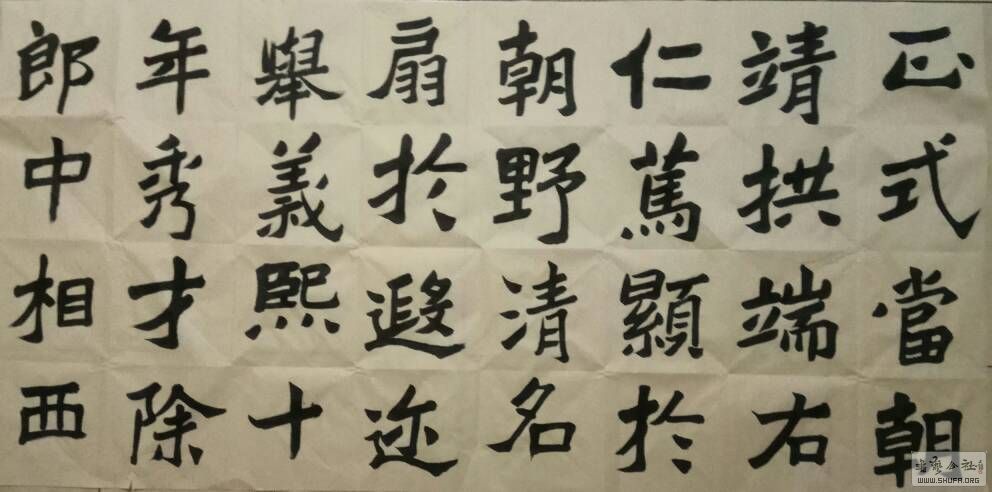 正式當朝
靖拱端右
仁篤顯於
朝野清名
扇於遐迩
舉義熙十
年秀才除
郎中相西
書藝公社
WWW.SHUFA.ORG